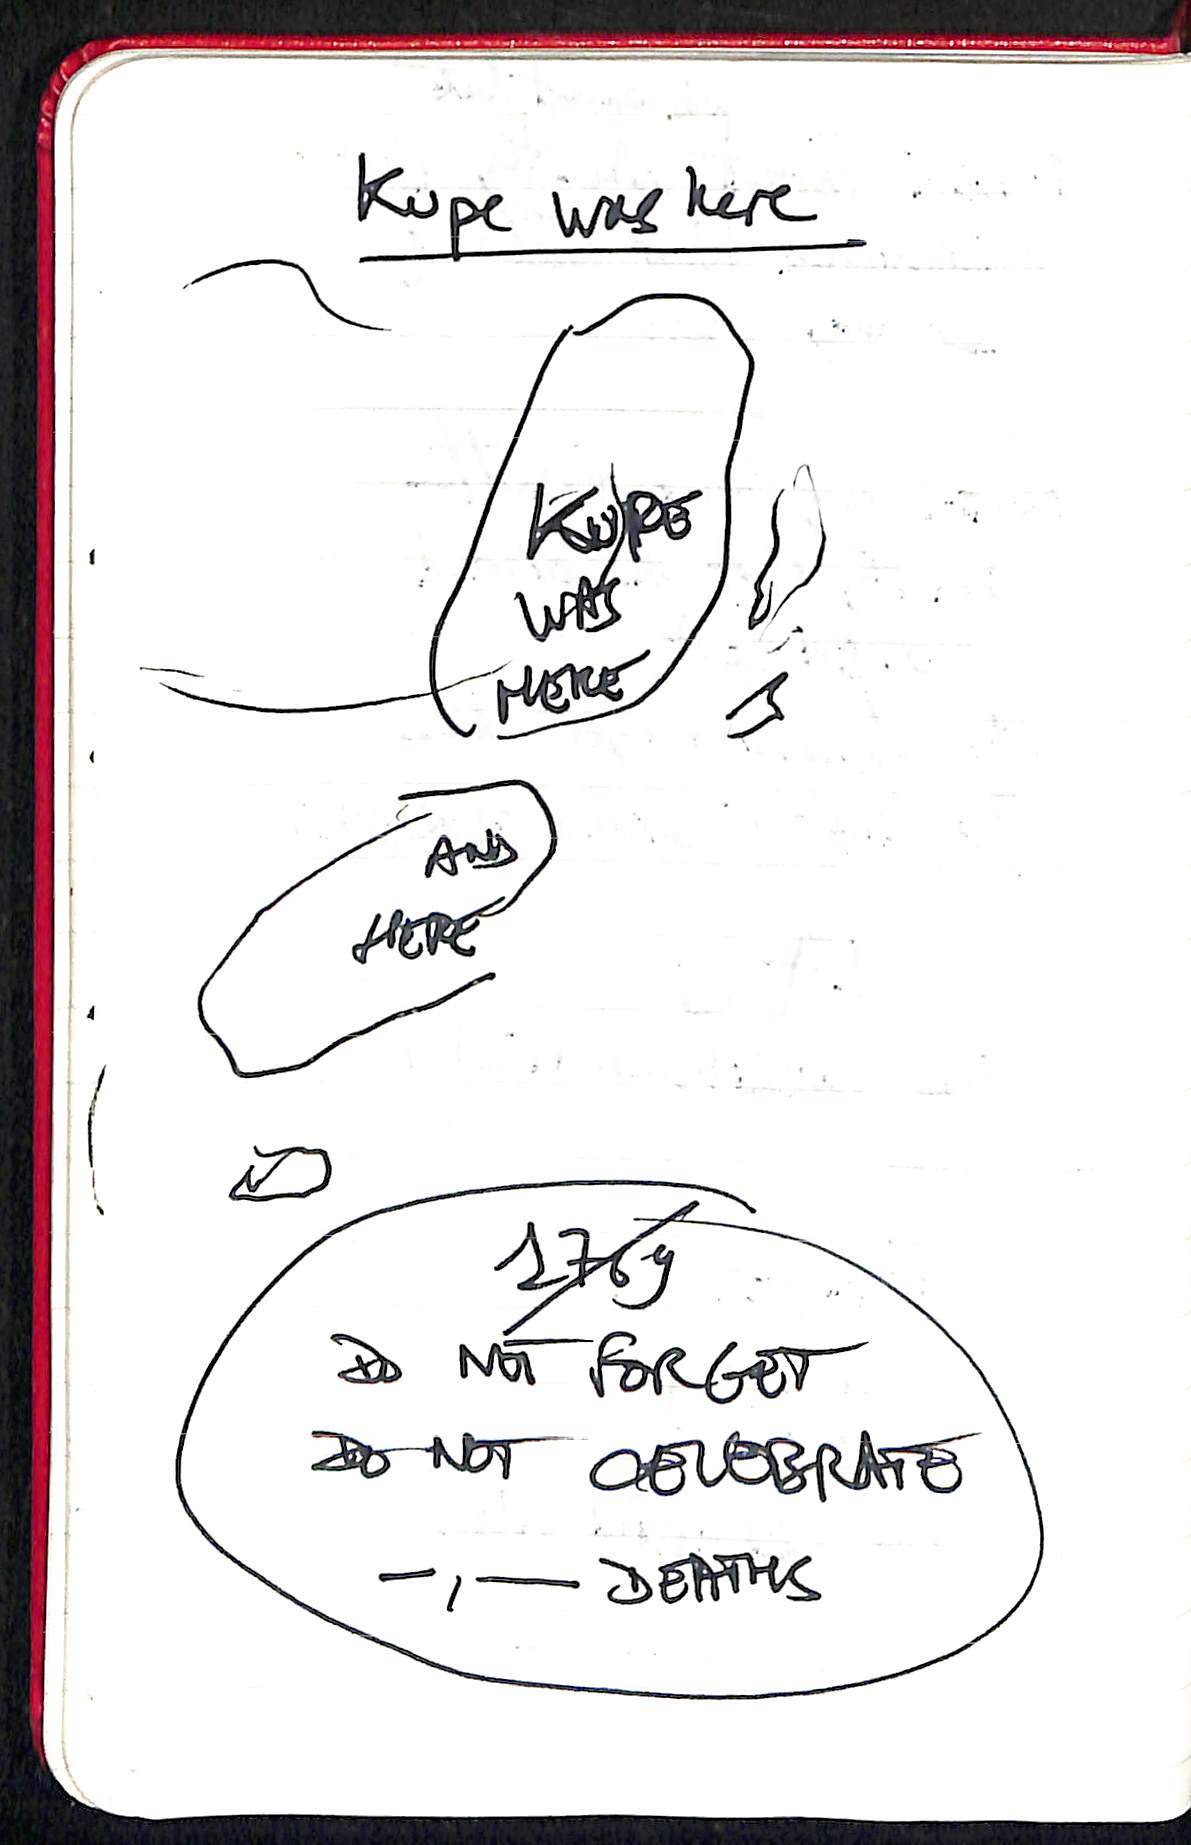 Kupe was here
KUPE
WAS
HERE
AND
HERE
1769
DO NOT FORGET
DO NOT CELEBRATE
—,— DEATHS